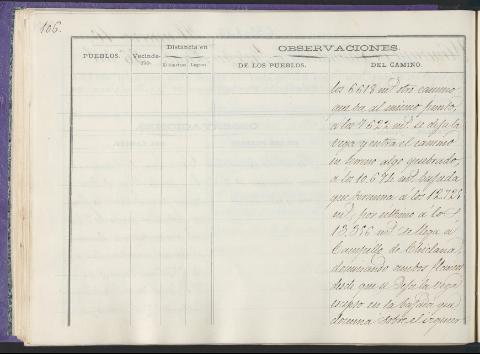 106.
PUEBLOS.
Vecinda-
rio.
Distancia en
Kilómetros
Leguas
OBSERVACIONES.
DE LOS PUEBLOS.
DEL CAMINO.
los 6618 mt otro camino
que va al mismo punto,
a los 7622 mt se deja la
vega y entra el camino
en terreno algo quebrado,
a los 10.674 mt bajada
que termina a los 12.728
mt, por último a los
13.386 mt se llega a
Campillo de
dominando ambos flancos
desde que se deja la vega
escepto en la bajada que
domina sobre el izquier